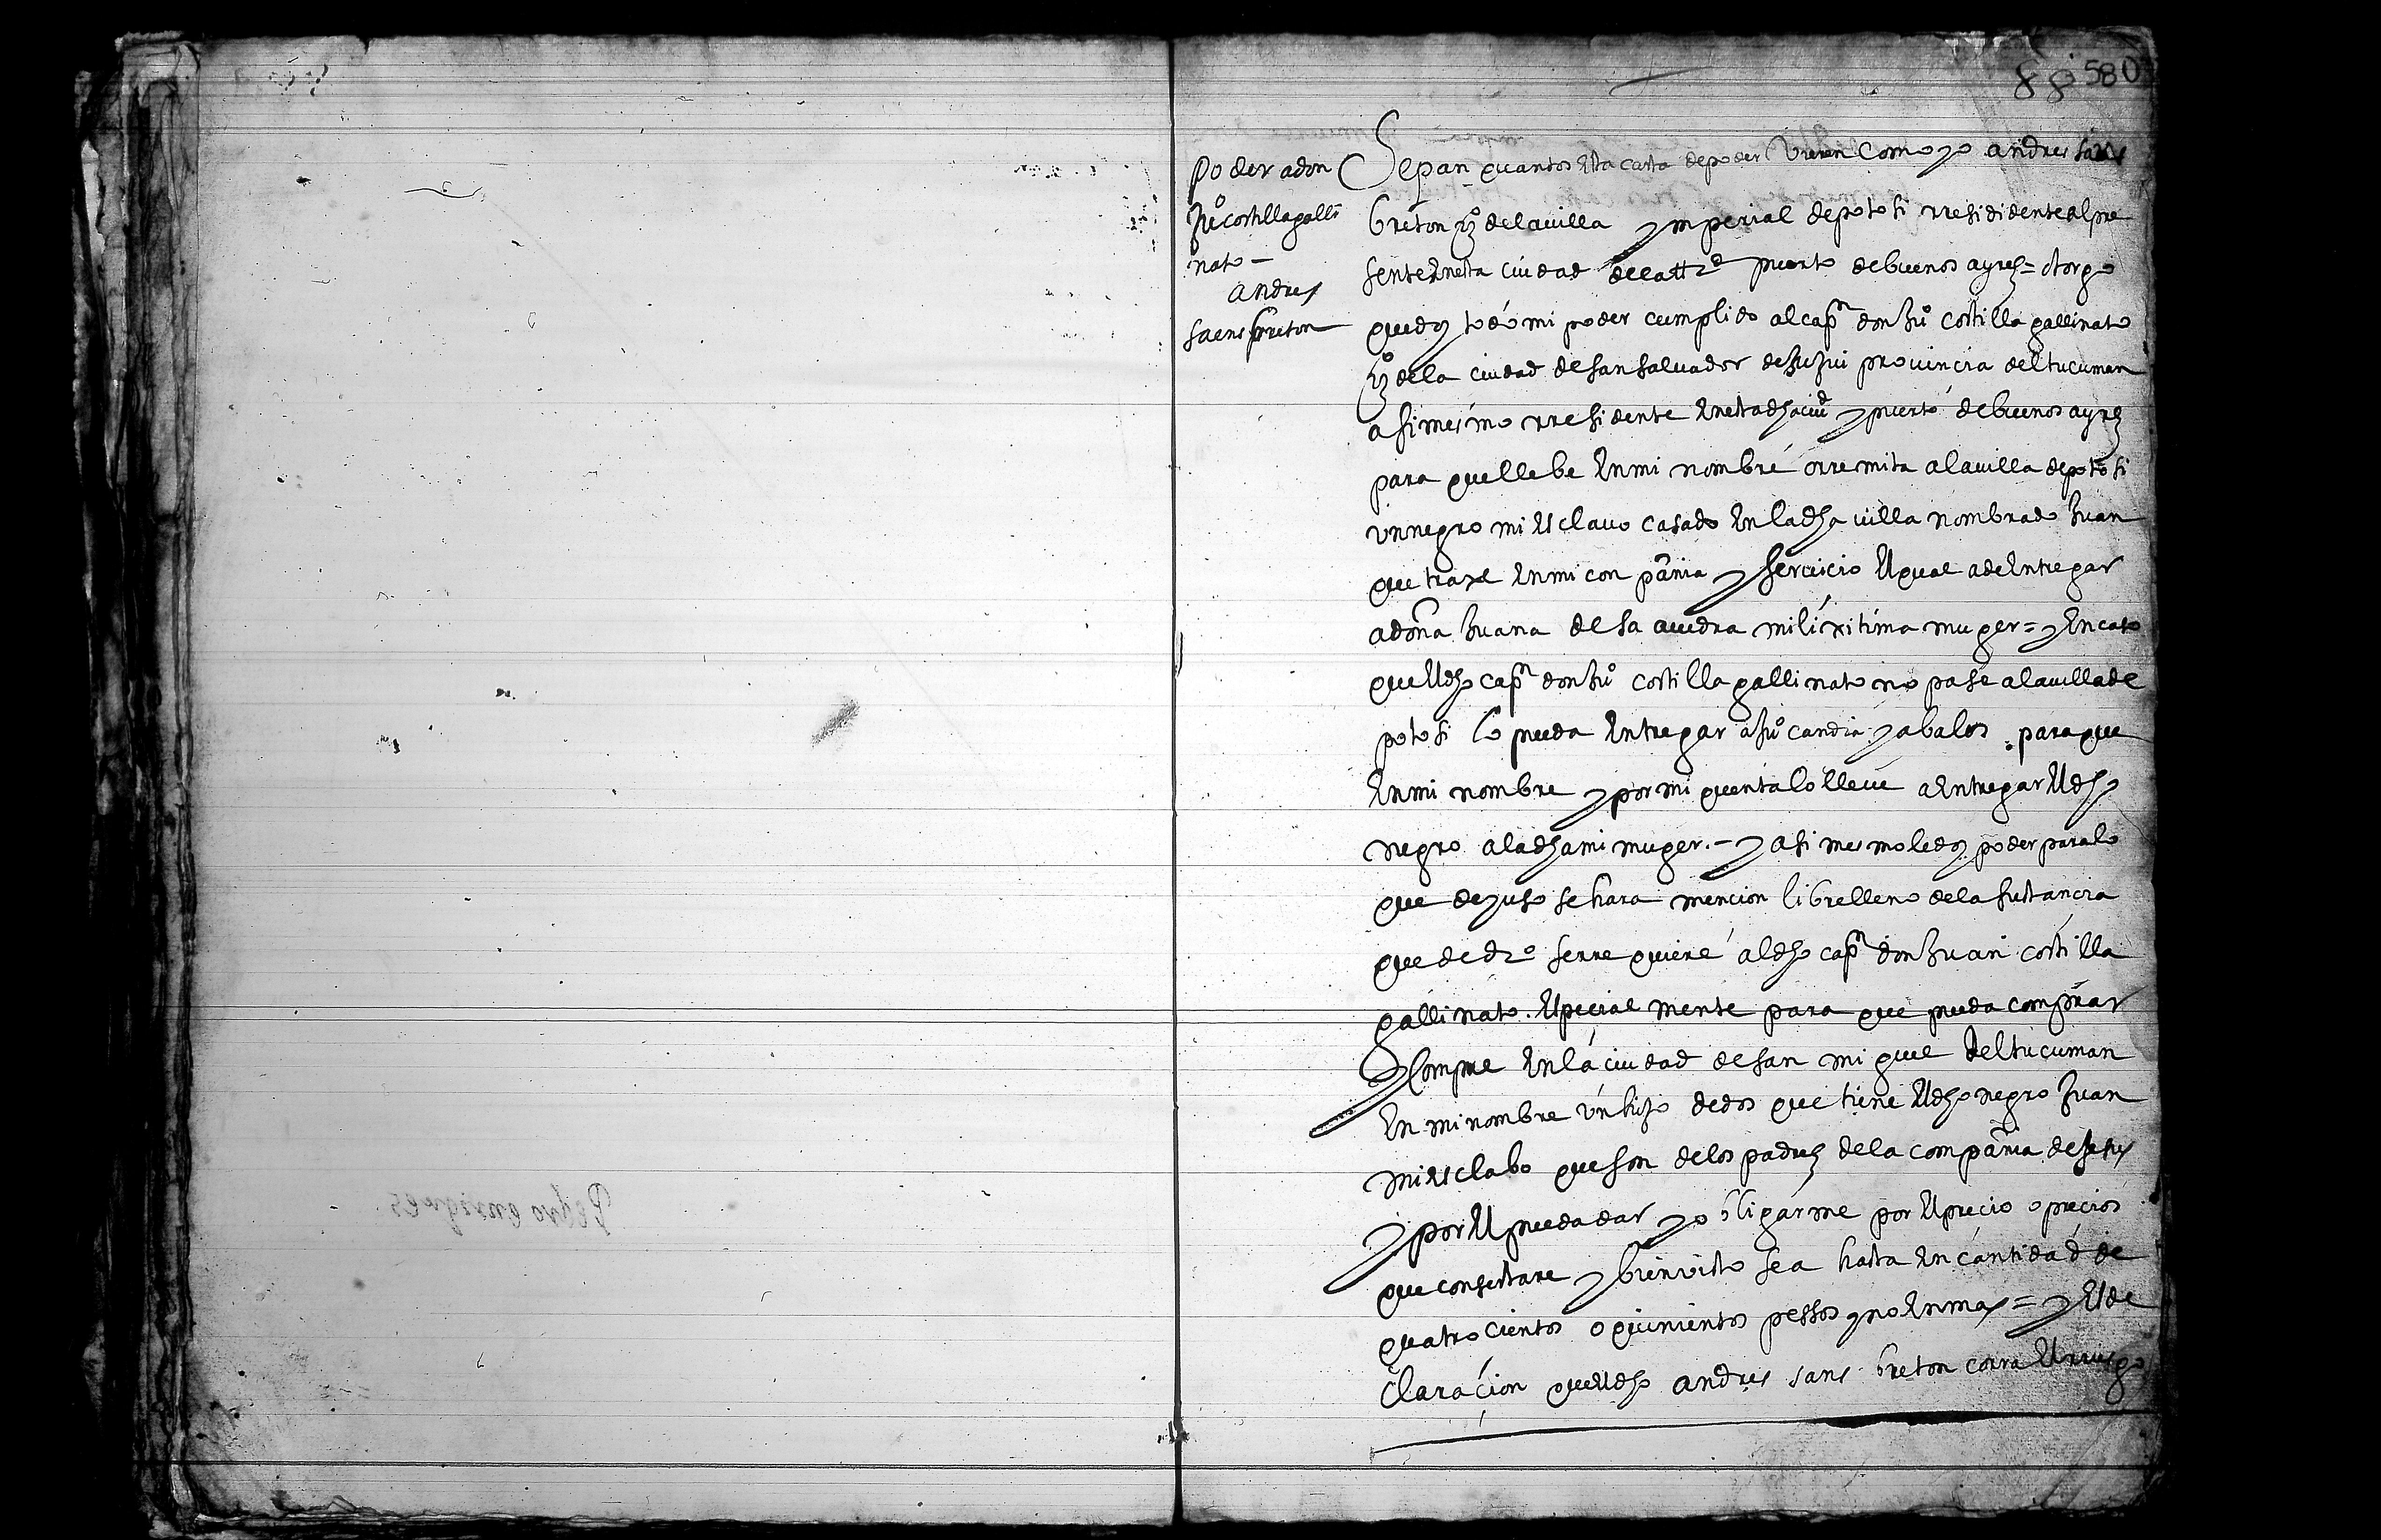 88 580
Poder a don
Juº costilla galli
nato –
andres
saens breton
Sepan quantos esta carta de poder vieren como yo andres sans
breton vzº de la uilla ymperial de potosi rresididente al pre
sente en esta ciudad de la ttrd puerto de buenos ayres = otorgo
que doy todo mi poder cumplido al capn don Juº costilla gallinato
vzº de la ciudad de san saluador de Jujui prouincia del tucuman
asimesmo rresidente en esta dha ciud y puerto de buenos ayres
para que llebe en mi nombre o rremita a la uilla de potosi
vn negro mi esclauo casado en la dha uilla nombrado Juan
que traxe en mi conpañia y seruicio el qual a de entregar
a doña Juana de sa auedra mi lixitima muger = y en caso
que el dho capn don Juº costilla gallinato no pase a la uilla de
potosi lo pueda entregar a Juº candia y abalos . para que
en mi nombre y por mi quenta lo lleue a entregar el dho
negro a la dha mi muger. – y asi mesmo le doy poder para lo
que de yuso se hara mencion libre lleno de la sustancia
que de dro se rrequiere al dho capn don Juan costilla
gallinato. especial mente para que pueda comprar
y compre en la ciudad de san miguel del tucuman
en mi nombre un hijo de dos que tiene el dho negro Juan
mi esclabo que son de los padres de la compañia de Jesus
y por el pueda dar y obligarme por el precio o precios
que consertare y bien visto sea hasta en cantidad de
quatrocientos o quinientos pessos y no en mas = y es de
claracion que el dho andres sans breton corra el rriesgo
Pedro enrriques